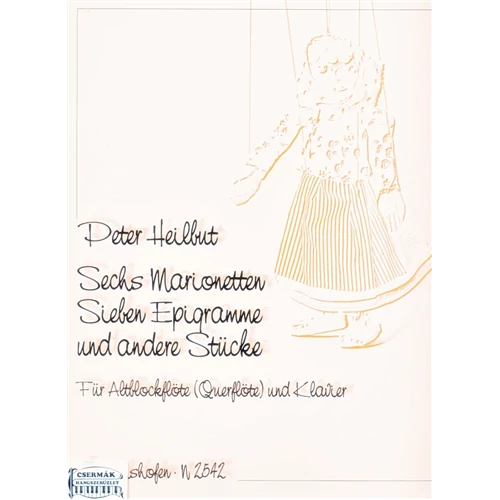 Peter Heilbut
Sechs Marionetten
Sieben Epigramme
und andere Stücke
Für Altblockflöte (Querflöte) und Klavier
shofen · N 2542
CSERMÁK
HANGSZERÜZLET